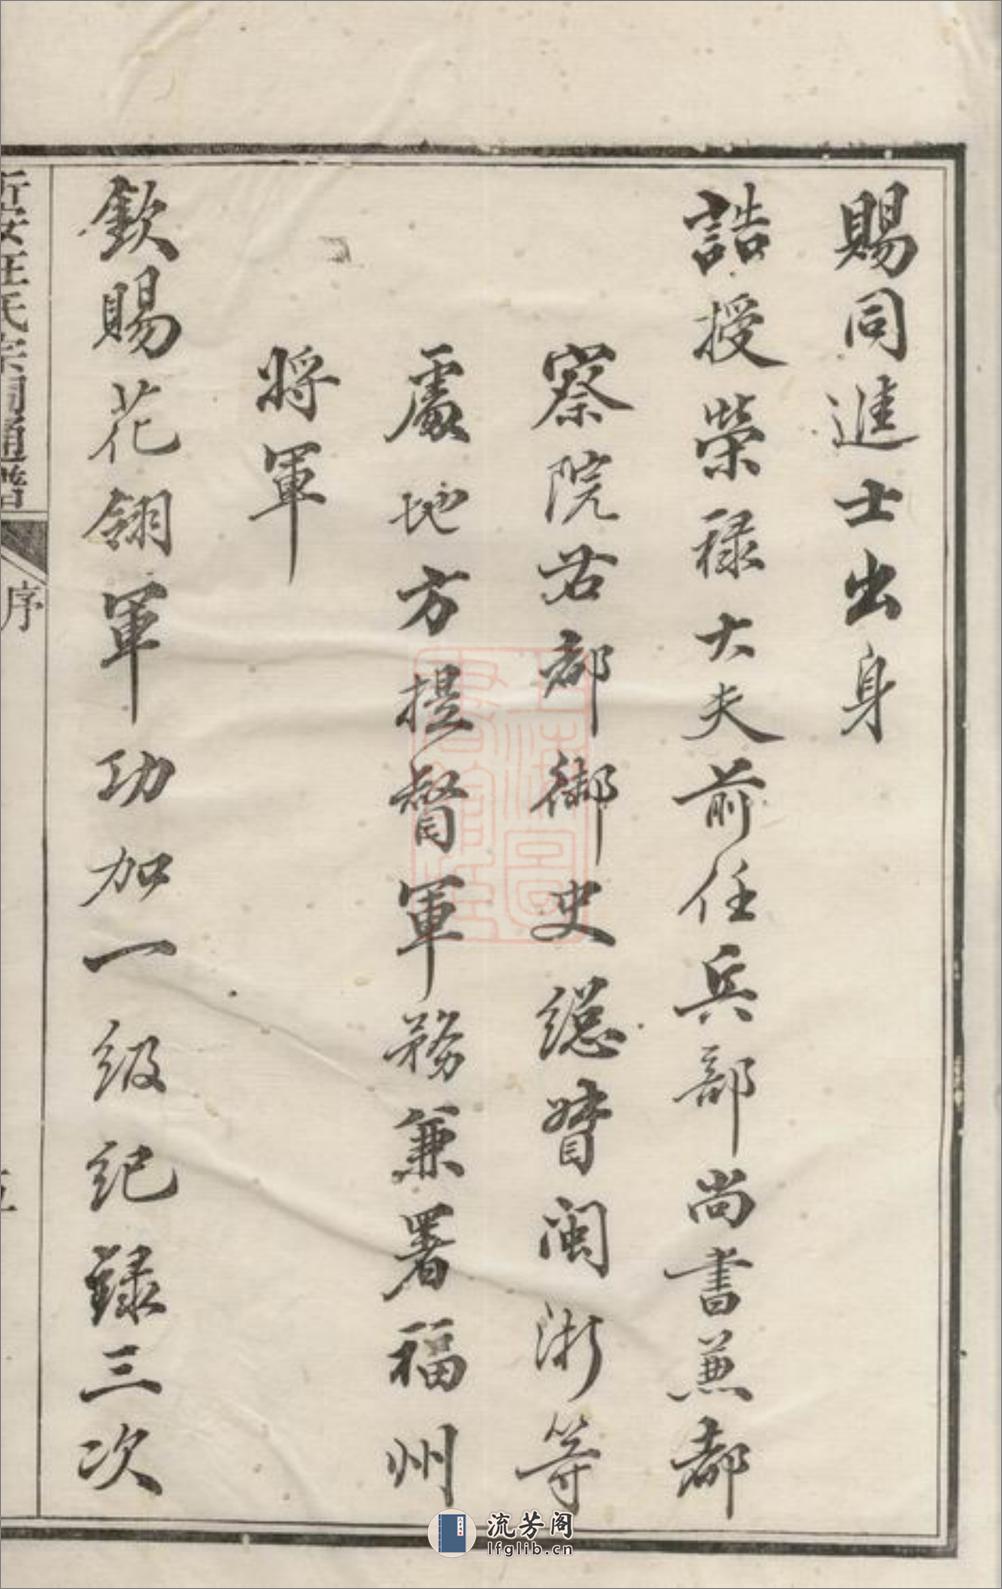 賜同進士出身
誥授榮禄大夫前任兵部尚書兼都
察院右都御史總督閩浙等
處地方提督軍務兼署福州
將軍
欽賜花翎軍功加一級紀録三次
新安汪氏宗祠通譜
序
五
流芳阁
lfglib.cn